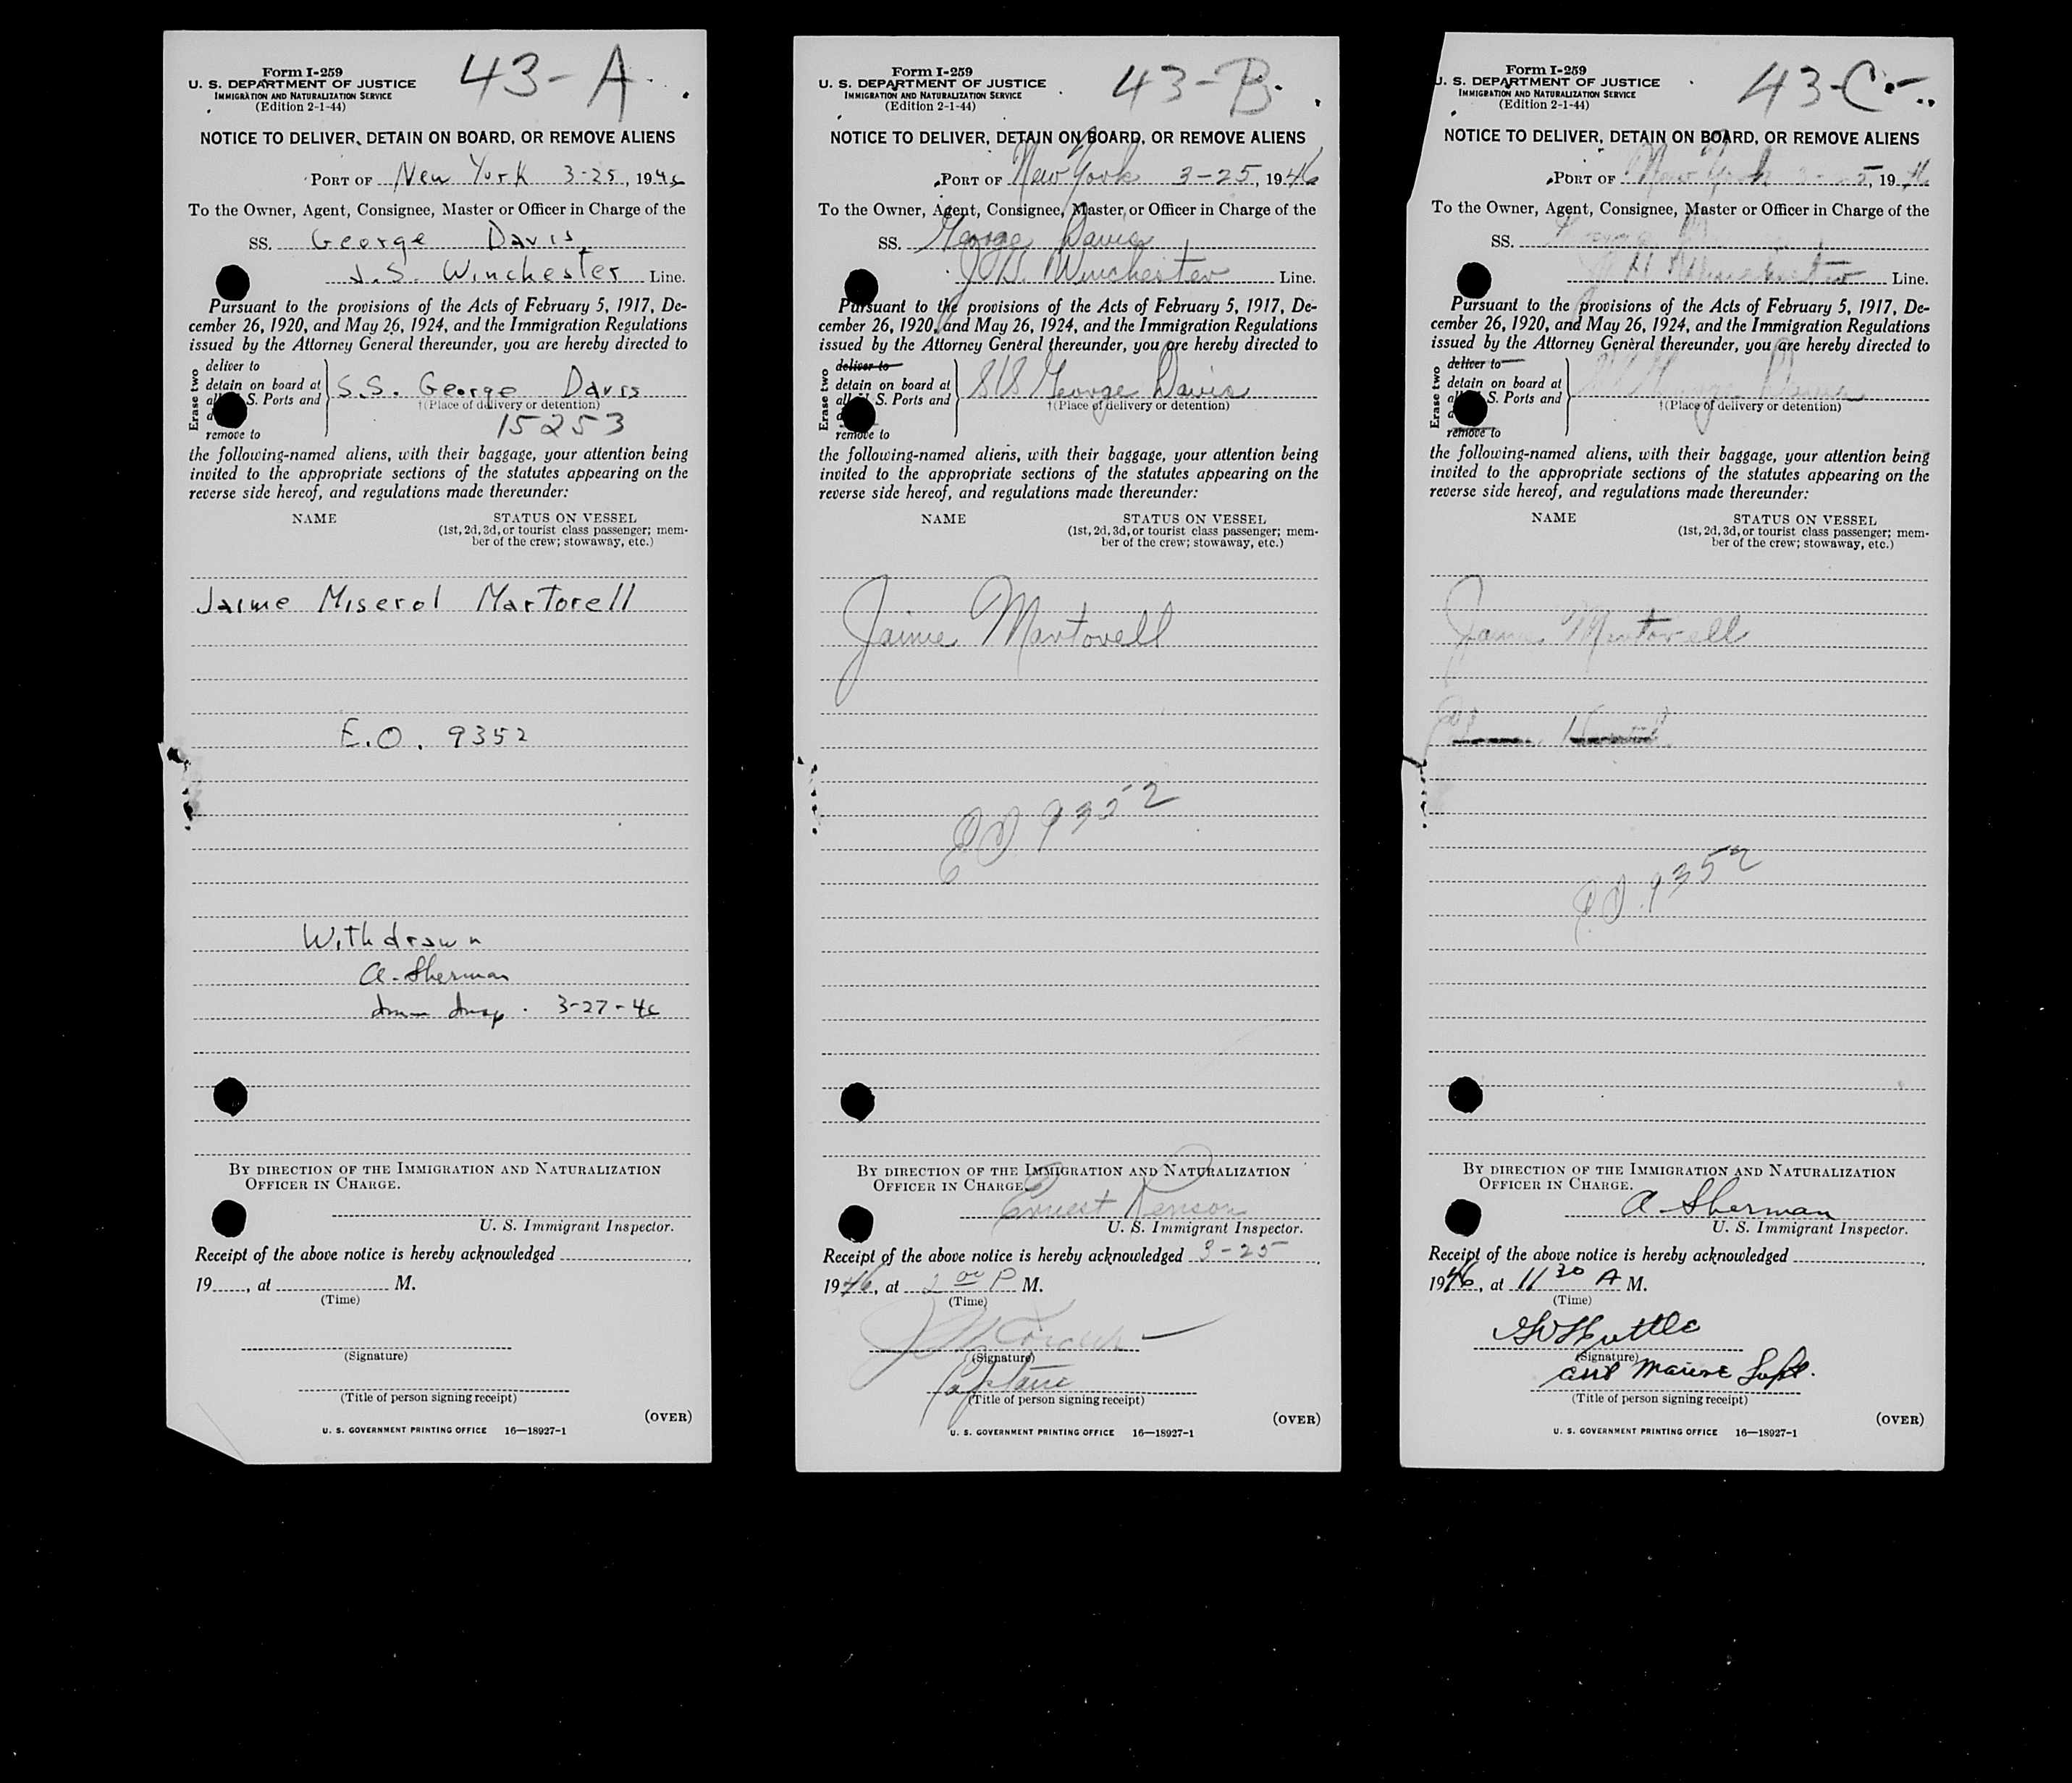 43-A.
Form I-259
U. S. DEPARTMENT OF JUSTICE
IMMIGRATION AND NATURALIZATION SERVICE
(Edition 2-1-44)
NOTICE TO DELIVER, DETAIN ON BOARD, OR REMOVE ALIENS
PORT OF New York 3-25, 1946
To the Owner, Agent, Consignee, Master or Officer in Charge of the
SS. George Davis
J.S. Winchester Line.
Pursuant to the provisions of the Acts of February 5, 1917, De-
cember 26, 1920, and May 26, 1924, and the Immigration Regulations
issued by the Attorney General thereunder, you are hereby directed to
Erase two
deliver to
detain on board at
S. Ports and
remove to
S.S. George Davis
†(Place of delivery or detention)
15253
the following-named aliens, with their baggage, your attention being
invited to the appropriate sections of the statutes appearing on the
reverse side hereof, and regulations made thereunder:
NAME STATUS ON VESSEL
(1st, 2d, 3d, or tourist class passenger; mem-
ber of the crew; stowaway, etc.)
Jaime Miserol Martorell
E.O. 9352
Withdrawn
A. Sherman
Imm Insp. 3-27-46
BY DIRECTION OF THE IMMIGRATION AND NATURALIZATION
OFFICER IN CHARGE.
U. S. Immigrant Inspector.
Receipt of the above notice is hereby acknowledged
19, at M.
(Time)
(Signature)
(Title of person signing receipt)
(OVER)
U. S. GOVERNMENT PRINTING OFFICE 16—18927-1
43-B.
Form I-259
U. S. DEPARTMENT OF JUSTICE
IMMIGRATION AND NATURALIZATION SERVICE
(Edition 2-1-44)
NOTICE TO DELIVER, DETAIN ON BOARD, OR REMOVE ALIENS
PORT OF New York 3-25, 1946
To the Owner, Agent, Consignee, Master or Officer in Charge of the
SS. George Davis
J.H. Winchester Line.
Pursuant to the provisions of the Acts of February 5, 1917, De-
cember 26, 1920, and May 26, 1924, and the Immigration Regulations
issued by the Attorney General thereunder, you are hereby directed to
Erase two
deliver to
detain on board at
S. Ports and
remove to
S/S George Davis
†(Place of delivery or detention)
the following-named aliens, with their baggage, your attention being
invited to the appropriate sections of the statutes appearing on the
reverse side hereof, and regulations made thereunder:
NAME STATUS ON VESSEL
(1st, 2d, 3d, or tourist class passenger; mem-
ber of the crew; stowaway, etc.)
Jaime Martorell
EO 9352
BY DIRECTION OF THE IMMIGRATION AND NATURALIZATION
OFFICER IN CHARGE.
Ernest Renson
U. S. Immigrant Inspector.
Receipt of the above notice is hereby acknowledged 3-25
1946, at 2 00 P M.
(Time)
(Signature)
Captain
(Title of person signing receipt)
(OVER)
U. S. GOVERNMENT PRINTING OFFICE 16—18927-1
43-C
Form I-259
U. S. DEPARTMENT OF JUSTICE
IMMIGRATION AND NATURALIZATION SERVICE
(Edition 2-1-44)
NOTICE TO DELIVER, DETAIN ON BOARD, OR REMOVE ALIENS
PORT OF New York 3-25, 1946
To the Owner, Agent, Consignee, Master or Officer in Charge of the
SS.
J H Winchester Line.
Pursuant to the provisions of the Acts of February 5, 1917, De-
cember 26, 1920, and May 26, 1924, and the Immigration Regulations
issued by the Attorney General thereunder, you are hereby directed to
Erase two
deliver to
detain on board at
S. Ports and
remove to
George Davis
†(Place of delivery or detention)
the following-named aliens, with their baggage, your attention being
invited to the appropriate sections of the statutes appearing on the
reverse side hereof, and regulations made thereunder:
NAME STATUS ON VESSEL
(1st, 2d, 3d, or tourist class passenger; mem-
ber of the crew; stowaway, etc.)
Jaime Martorell
EO 9352
BY DIRECTION OF THE IMMIGRATION AND NATURALIZATION
OFFICER IN CHARGE.
A. Sherman
U. S. Immigrant Inspector.
Receipt of the above notice is hereby acknowledged
1946, at 11 30 A M.
(Time)
(Signature)
asst Marine Supt.
(Title of person signing receipt)
(OVER)
U. S. GOVERNMENT PRINTING OFFICE 16—18927-1